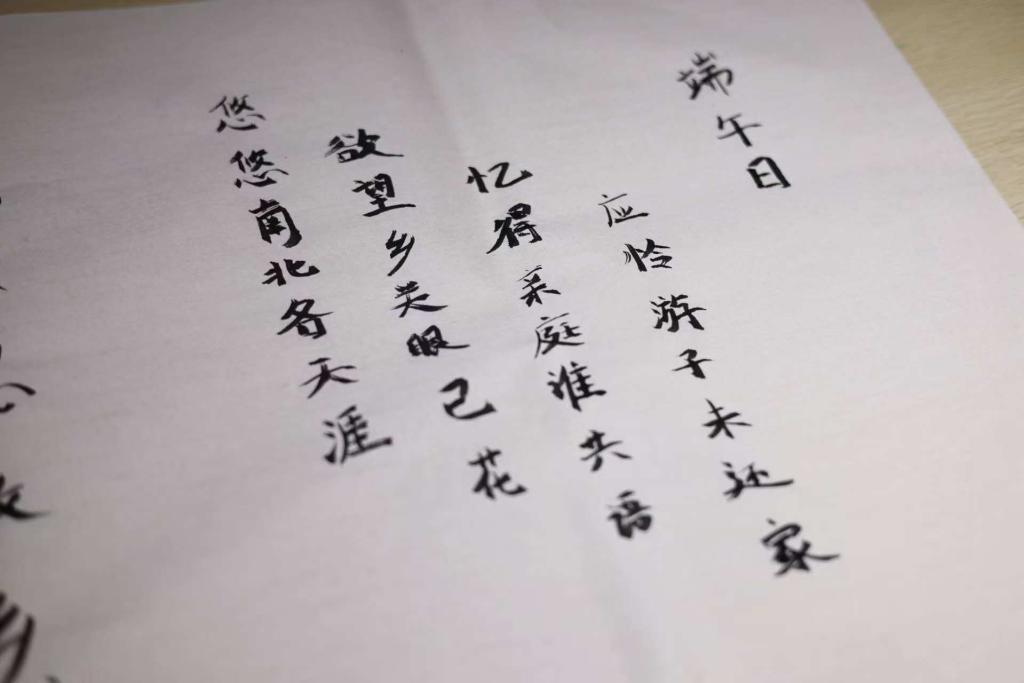 端午日
应怜游子未还家
忆得亲庭谁共语
欲望乡关眼已花
悠悠南北各天涯